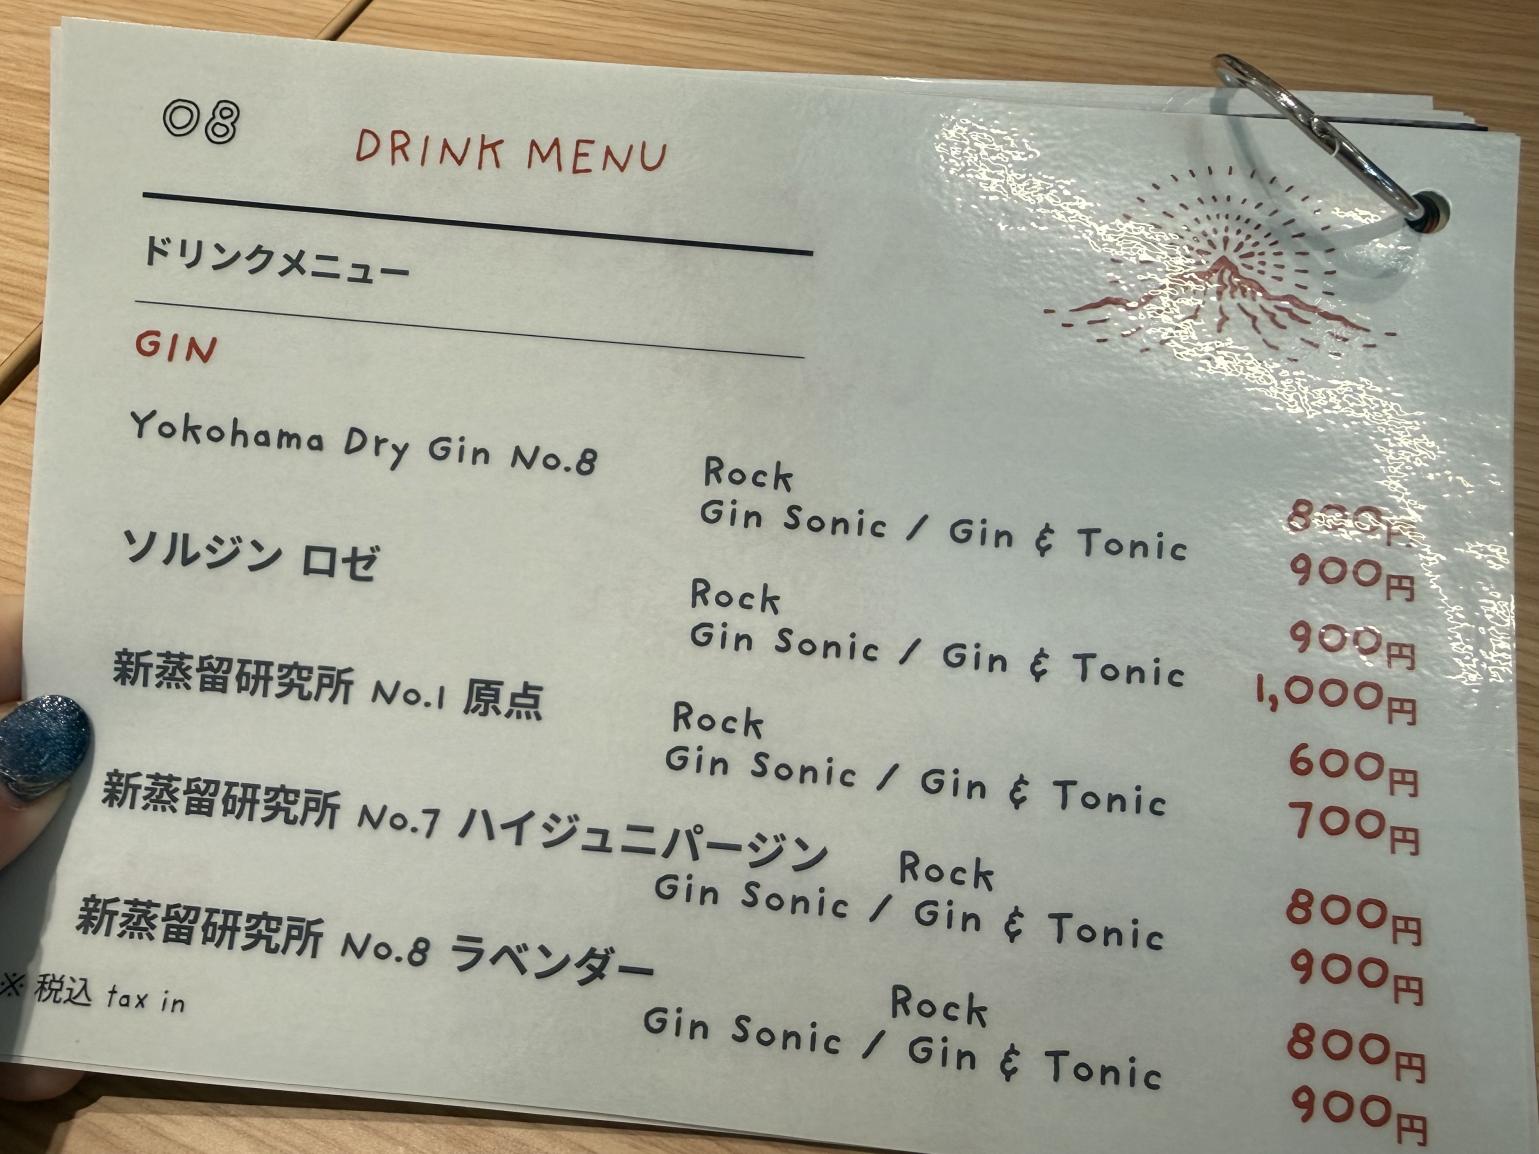 08
DRINK MENU
ドリンクメニュー
GIN
Yokohama Dry Gin No.8
Rock 800円
Gin Sonic / Gin & Tonic 900円
ソルジン ロゼ
Rock 900円
Gin Sonic / Gin & Tonic 1,000円
新蒸留研究所 No.1 原点
Rock 600円
Gin Sonic / Gin & Tonic 700円
新蒸留研究所 No.7 ハイジュニパージン Rock 800円
Gin Sonic / Gin & Tonic 900円
新蒸留研究所 No.8 ラベンダー
Rock 800円
Gin Sonic / Gin & Tonic 900円
※ 税込 tax in